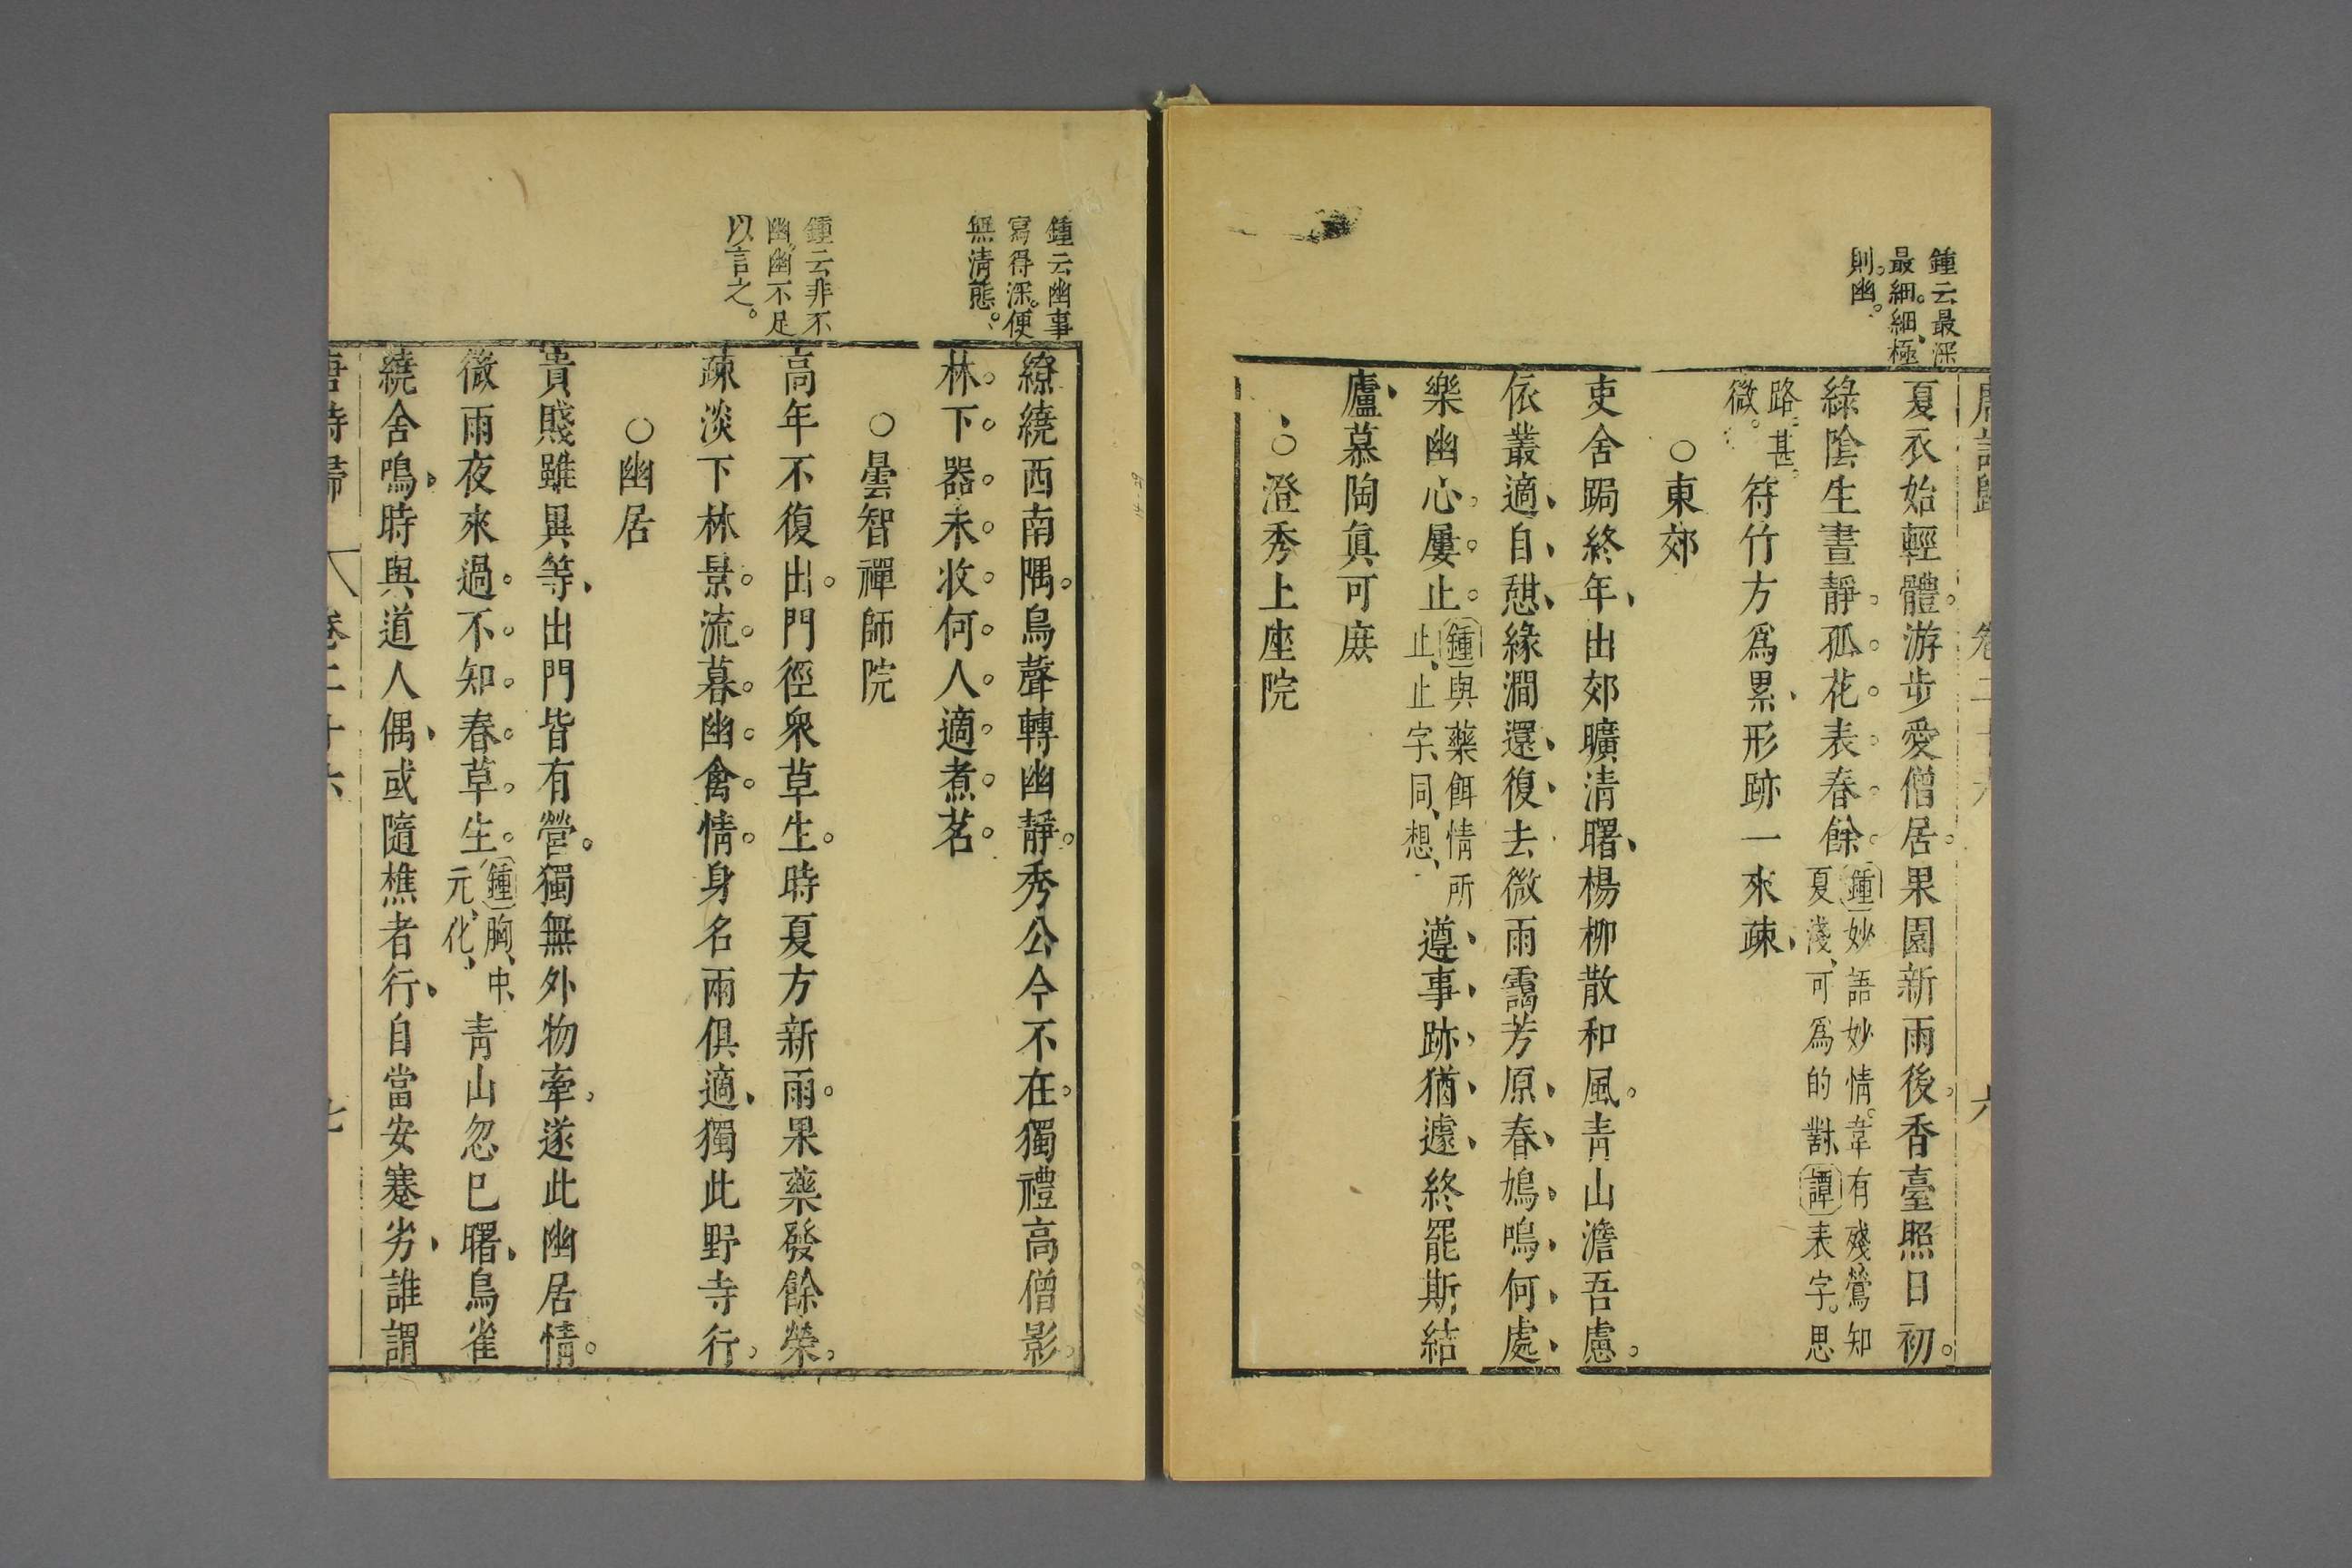 鍾云最深
最細。細、極
則幽。
夏衣始輕體。游步愛僧居。果園新雨後。香臺照日初。
綠陰生晝靜。孤花表春餘。鍾妙語妙情。韋有殘鶯知
夏淺、可爲的對、譚表字。思
路甚。
微。符竹方爲累、形跡一來疎、
○東郊
吏舍跼終年、出郊曠清曙、楊柳散和風。青山澹吾慮。
依叢適自憇、緣澗還復去微雨靄芳原、春鳩鳴何處、
樂幽心屢止。鍾與藥餌情所
止、止字同、想、遵事跡猶遽終罷斯結
廬、慕陶眞可庶
○澄秀上座院
鍾云幽事
寫得深。便
無清態。
繚繞西南隅。鳥聲轉幽靜。秀公今不在。獨禮高僧影。
林下器未收何人適煮茗。
○曇智禪師院
鍾云非不
幽。幽不足
以言之。
高年不復出。門徑衆草生。時夏方新雨。果藥發餘榮。
疎淡下林景流暮幽禽情。身名兩俱適、獨此野寺行。
○幽居
貴賤雖異等、出門皆有營。獨無外物牽、遂此幽居情。
微雨夜來過。不知春草生。鍾胸、中、
元、化、青山忽已曙、鳥雀
繞舍鳴、時與道人偶、或隨樵者行、自當安蹇劣、誰謂
唐詩歸 卷二十六 七